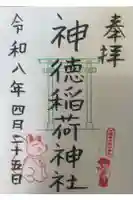 奉拝
神徳稲荷神社
令和八年四月二十五日